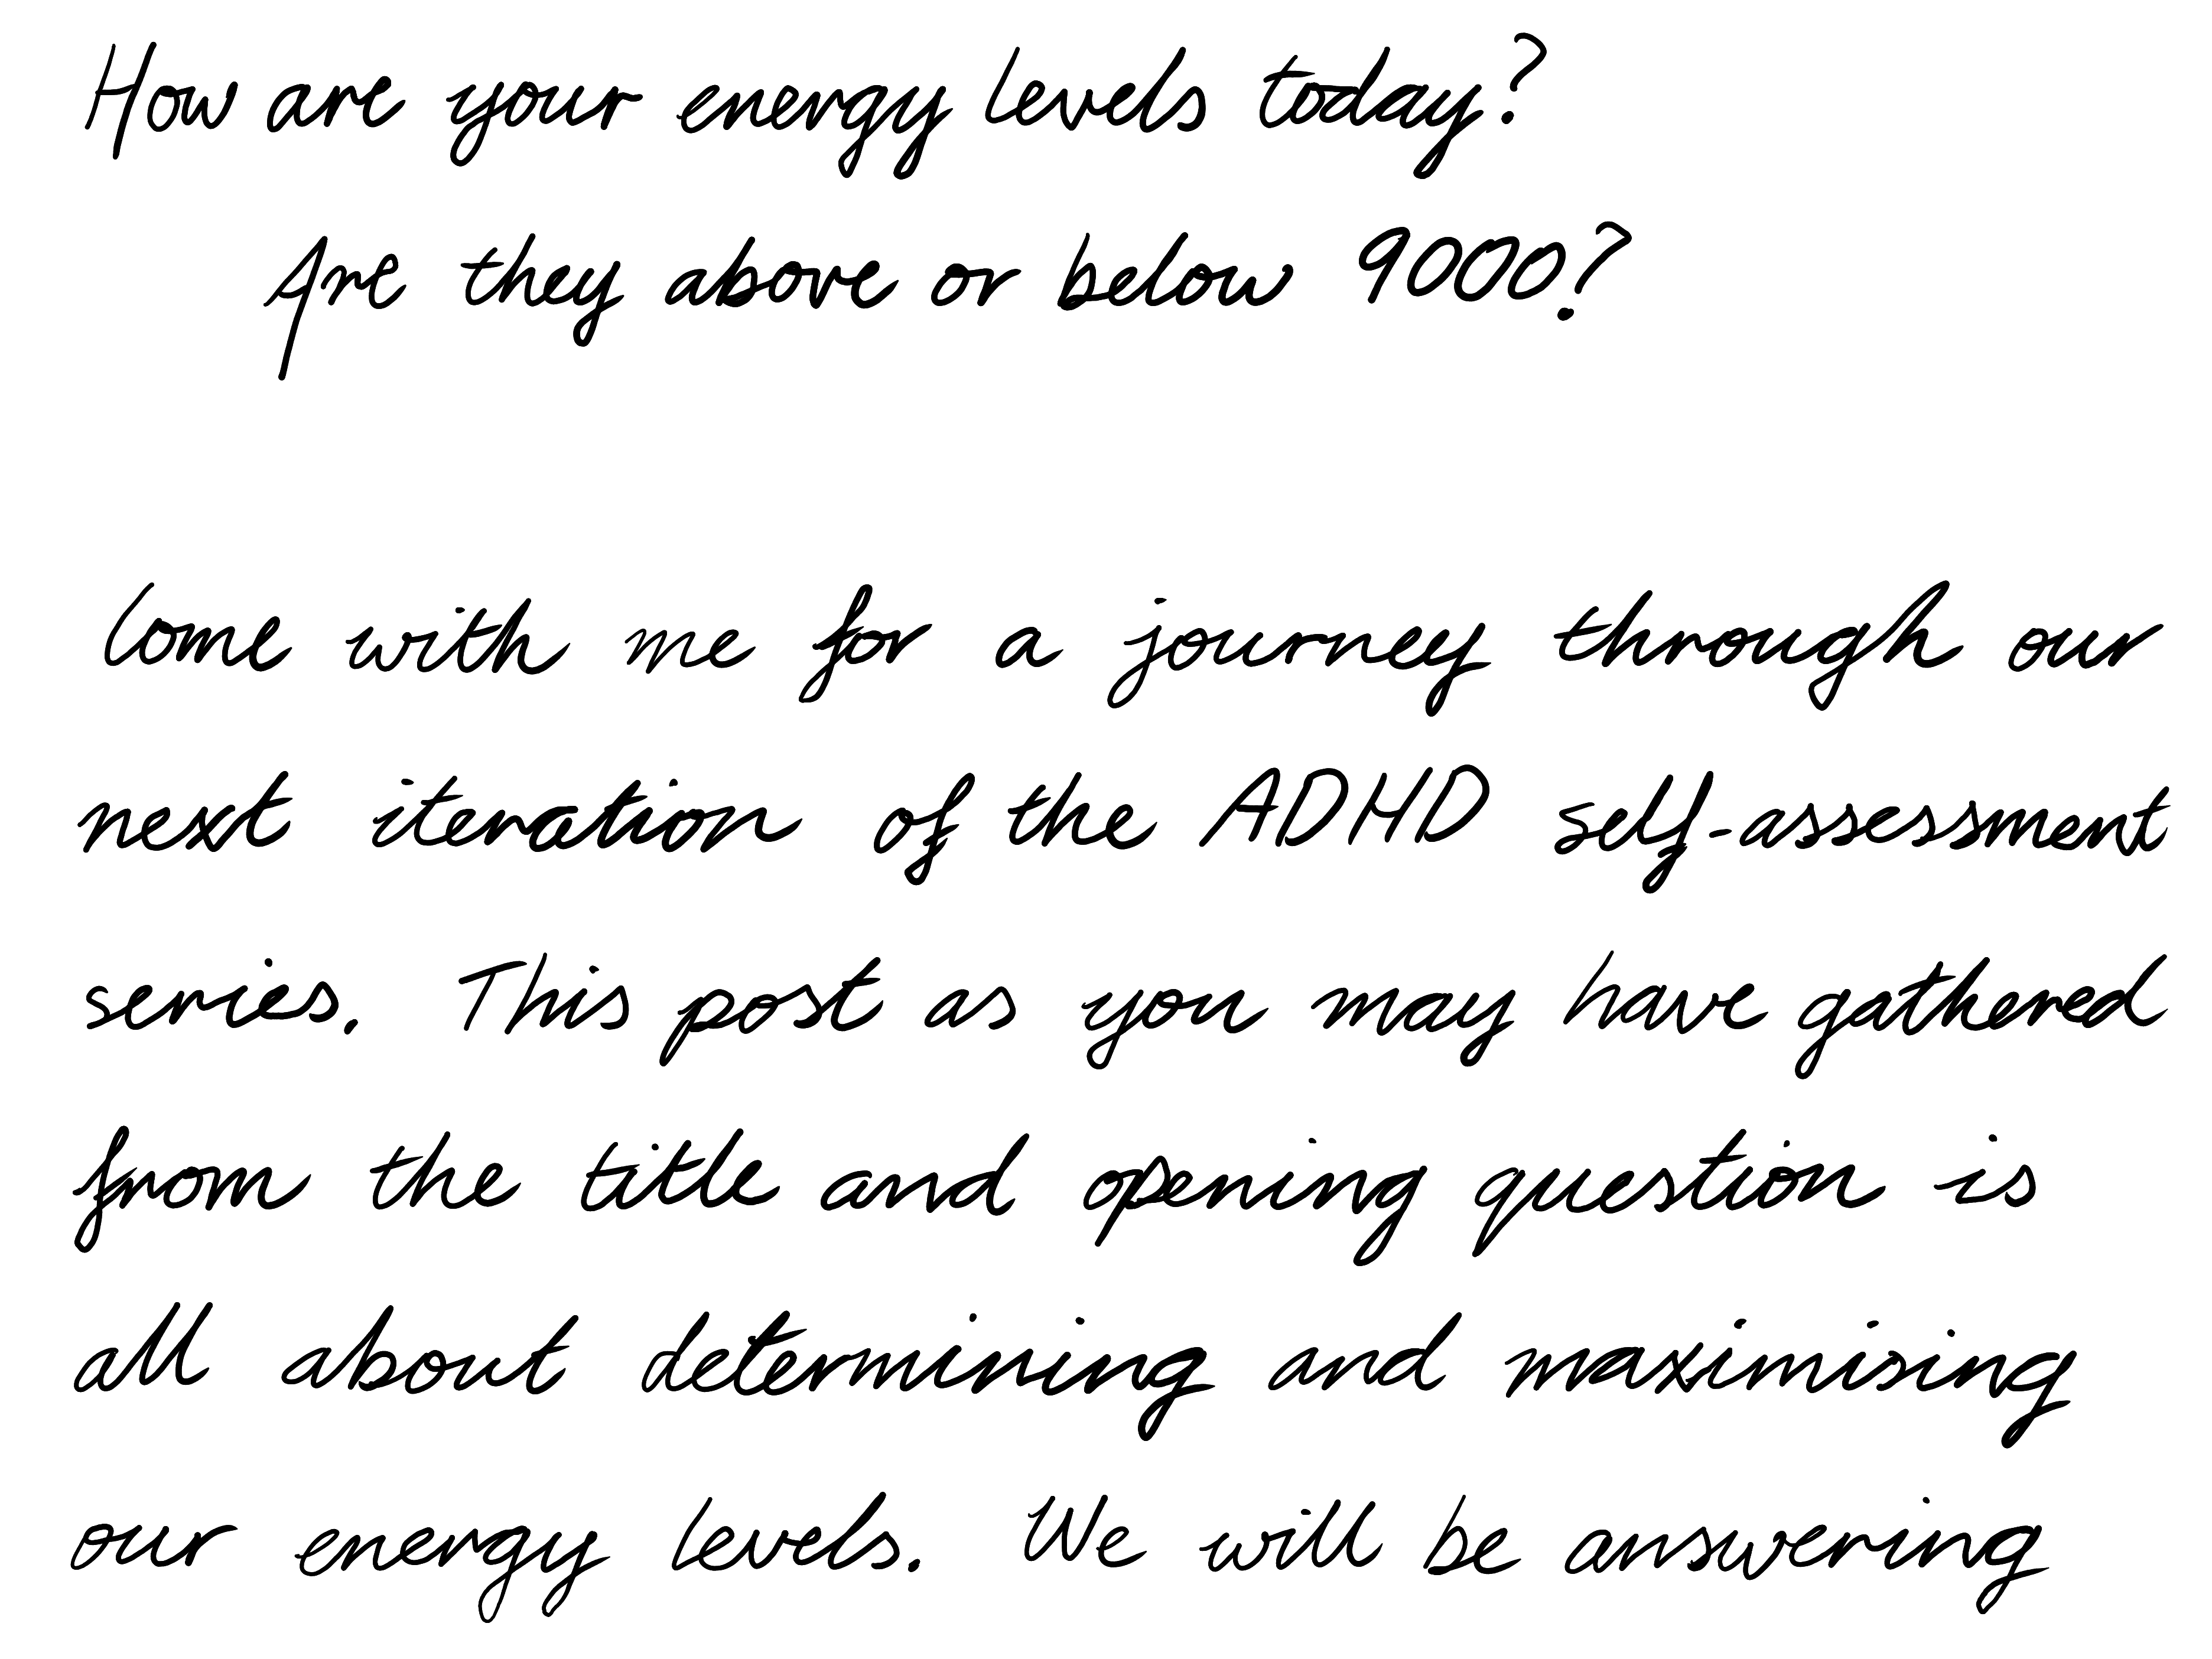 How are your energy levels today?
Are they above or below 9000?
Come with me for a journey through our
next iteration of the ADHD self-assessment
series. This post as you may have gathered
from the title and opening question is
all about determining and maximising
our energy levels. We will be answering